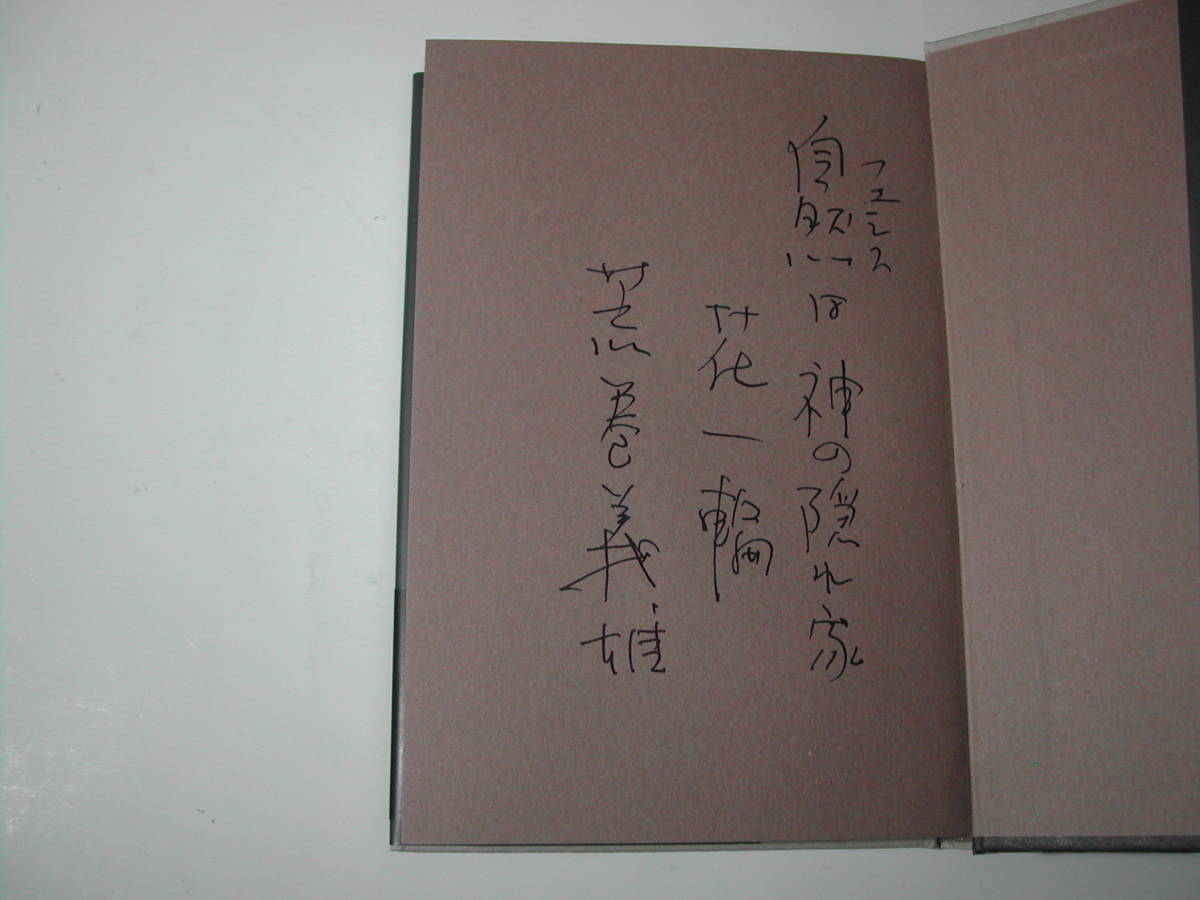 フユシス
自然は神の隠れ家
花一輪
荒巻義雄